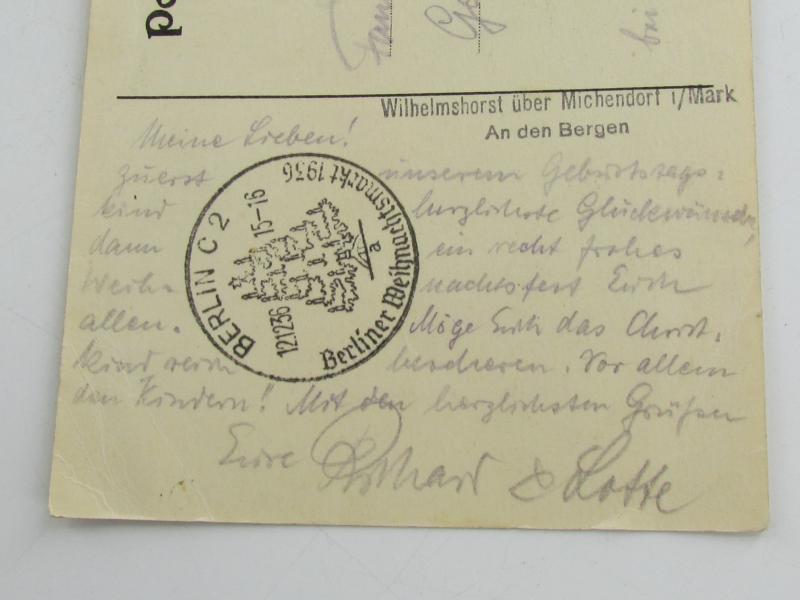 Po
Fam
bei
Wilhelmshorst über Michendorf i/Mark
An den Bergen
Meine Lieben!
zuerst unserem Geburtstags=
kind herzlichste Glückwünsche,
dann ein recht frohes
Weih- nachtsfest Euch
allen. Möge Euch das Christ-
kind reich bescheren. Vor allem
den Kindern! Mit den herzlichsten Grüßen
Eure Richard & Lotte
BERLIN C 2
12.12.36 15-16
a
Berliner Weihnachtsmarkt 1936